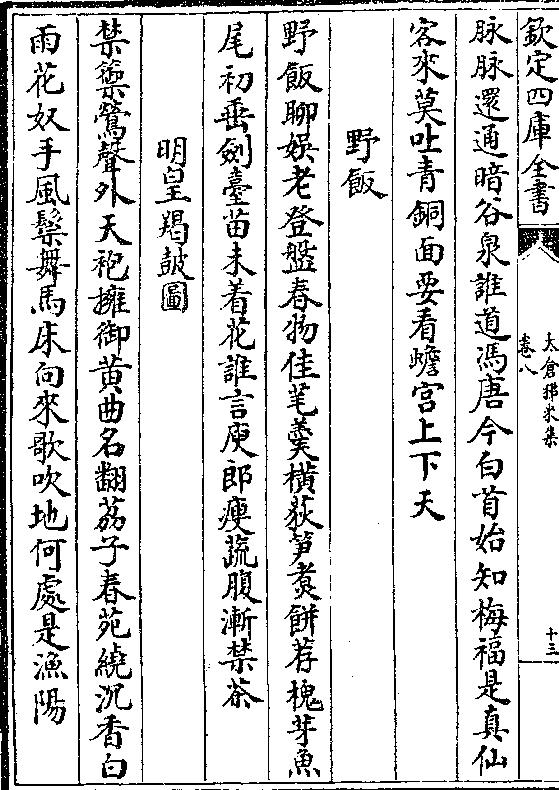 欽定四庫全書
太倉稊米集
卷八
十三
脉脉還通暗谷泉誰道馮唐今白首始知梅福是真仙
客來莫吐青銅面要看蟾宫上下天
野飯
野飯聊娱老登盤春物佳芼羮横荻笋煑餅荐槐芽魚
尾初垂劍臺苗未着花誰言庾郎瘦蔬腹漸禁茶
明皇羯皷圖
禁籞鶯聲外天袍擁御黄曲名翻荔子春苑繞沉香白
雨花奴手風鬃舞馬床向來歌吹地何處是漁陽